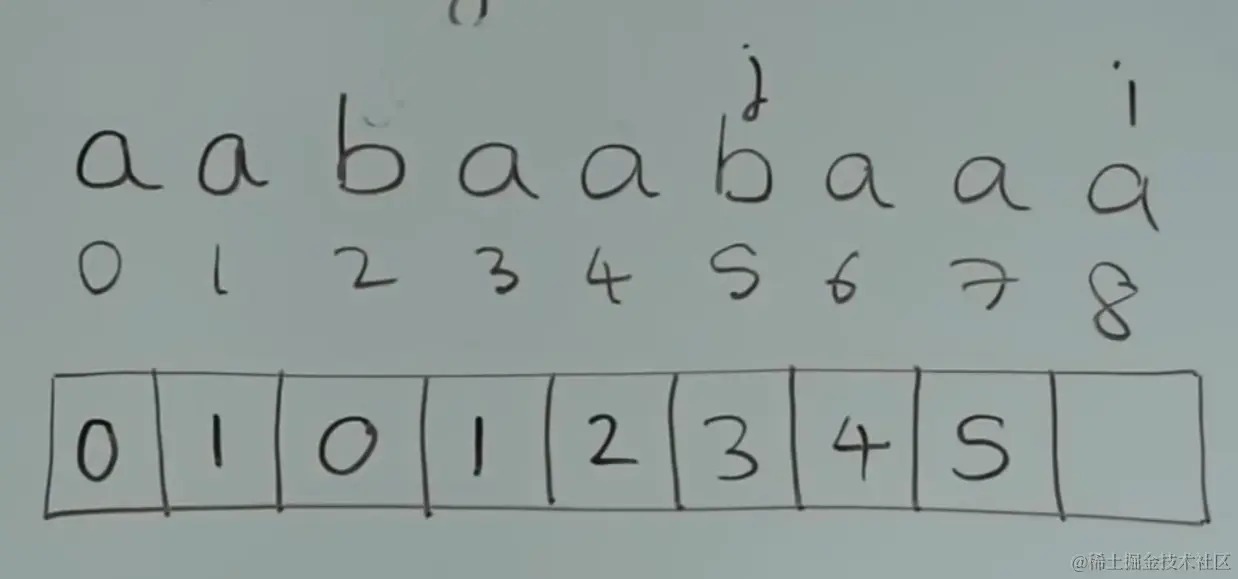 j i
a a b a a b a a a
0 1 2 3 4 5 6 7 8
0 1 0 1 2 3 4 5
@稀土掘金技术社区